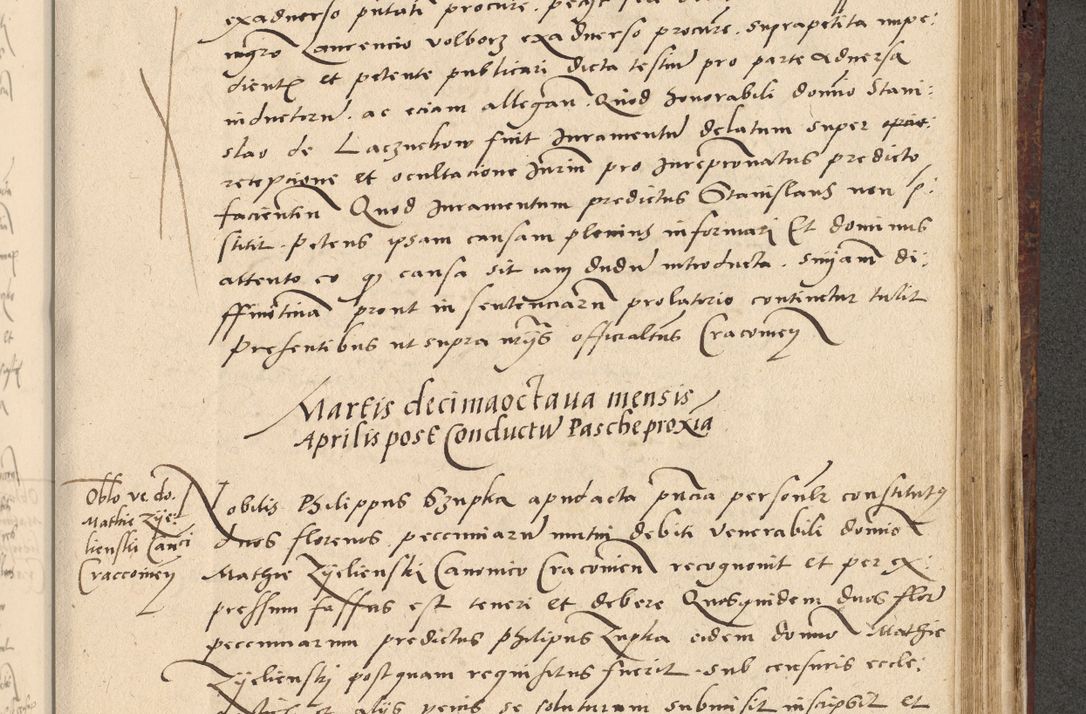 exaduerso putati procure. petijt sea
nigro Laurencio volborz exaduerso procure. suprapetita impe:
dient et petente publicari dicta testiu pro parte aduersa
inductoru. ac eciam allegan. Quod honorabili domino Stani:
slao de Laczuchow fuit Juramentu delatum super
receptione et ocultacione Juriu pro Jurepronatus predicto
facientiu Quod Juramentum predictus Stanislaus non p:
stitit. Petens ipsam causam plenius informari Et dominus
attento eo q causa sit iam dudu introducta. suam di:
ffinitiua pront in sentenciaru prolatorio continetur tulit
Presentibus ut supra nrijs officialtus Cracouien
Martis decimaoctaua mensis
Aprilis post Conductu Pasche proxia
Oblo ve. do.
Mathie Zije:
lienskij Canci
Craccouien
Nobilis Philippus Szupka apud acta pncia personlr constitutq
duos florenos. pecuniaru mutui debiti venerabili domino
Mathie Zijelienskij Canonico Cracouien recognouit et per ex:
pressum fassus est teneri et debere Quosquidem duos flor
pecuniarum predictus Philipus Zupka eidem domno Mathie
Zijelienskij postquam requisitus fuerit. sub censuris eccle:
et alijs penis se soluturum submisit inscripsit et